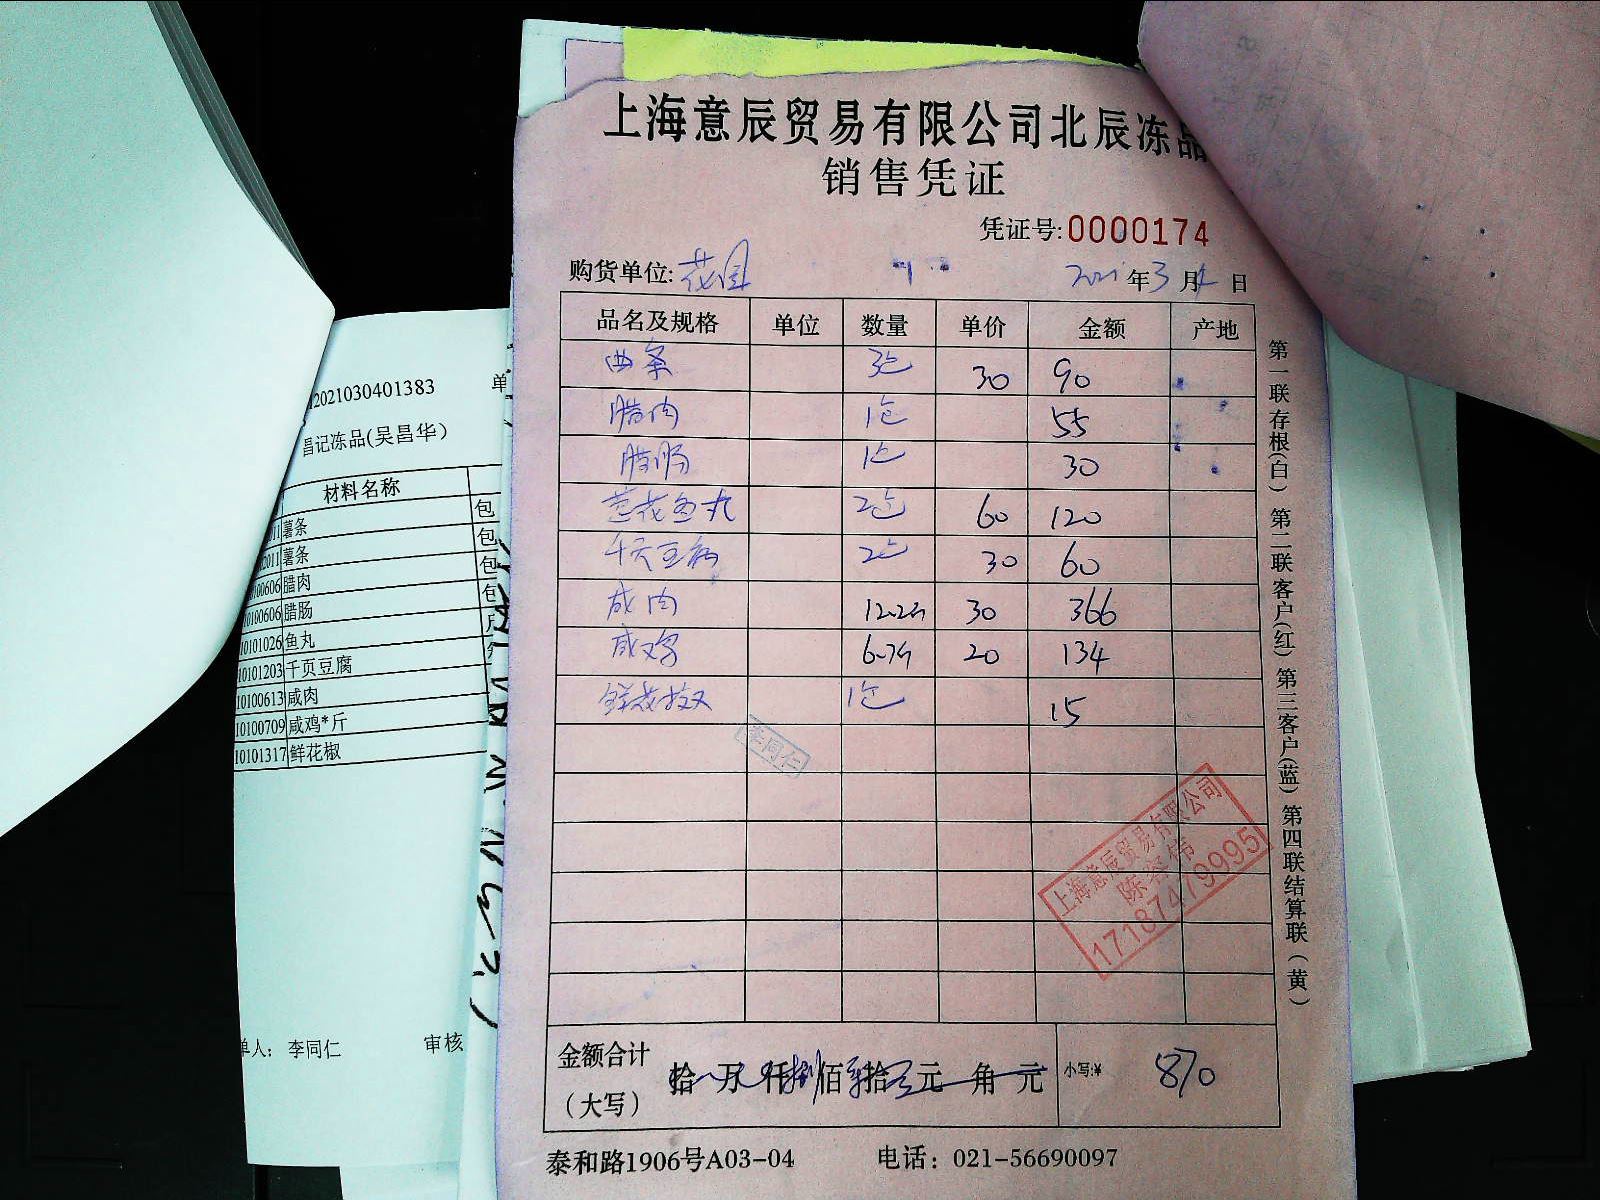 上海意辰贸易有限公司北辰冻品
销售凭证
凭证号:0000174
购货单位:花园 2021年3月4日
品名及规格 单位 数量 单价 金额 产地
曲条 3包 30 90
腊肉 1包 55
腊肠 1包 30
莲花鱼丸 2包 60 120
千页豆腐 2包 30 60
咸肉 12.2斤 30 366
咸鸡 6.7斤 20 134
鲜花椒 1包 15
李同仁
上海意辰贸易有限公司
17187479995
金额合计
(大写)
拾 万 仟 捌佰 拾 元 角 元 小写:¥ 870
泰和路1906号A03-04 电话：021-56690097
第一联存根(白) 第二联客户(红) 第三客户(蓝) 第四联结算联(黄)
2021030401383 单
昌记冻品(吴昌华)
材料名称
011 薯条 包
2011 薯条 包
100606 腊肉 包
0100606 腊肠 包
10101026 鱼丸
10101203 千页豆腐
10100613 咸肉
10100709 咸鸡*斤
10101317 鲜花椒
单人： 李同仁 审核